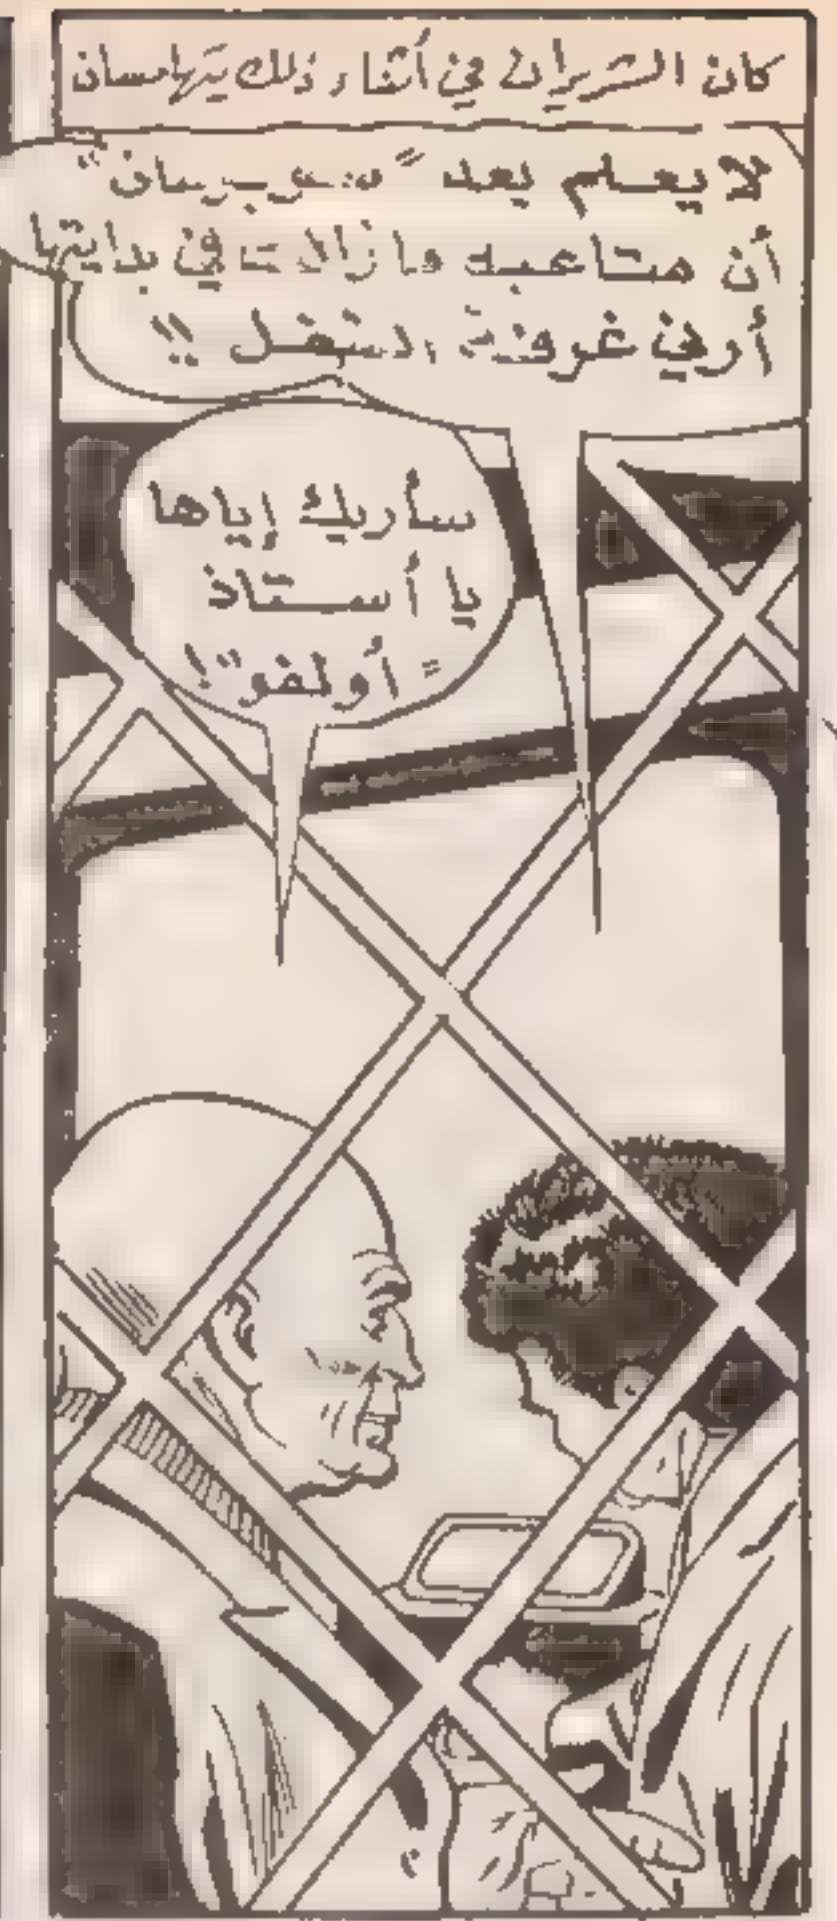 كان الشريران في أثناء ذلك يتهامسان
لا يعلم بعد "سوبرمان"
أن متاعبه ما زالت في بدايتها
أرني غرفة الثقل !!
سأريك إياها
يا أستاذ
"أولفو"!